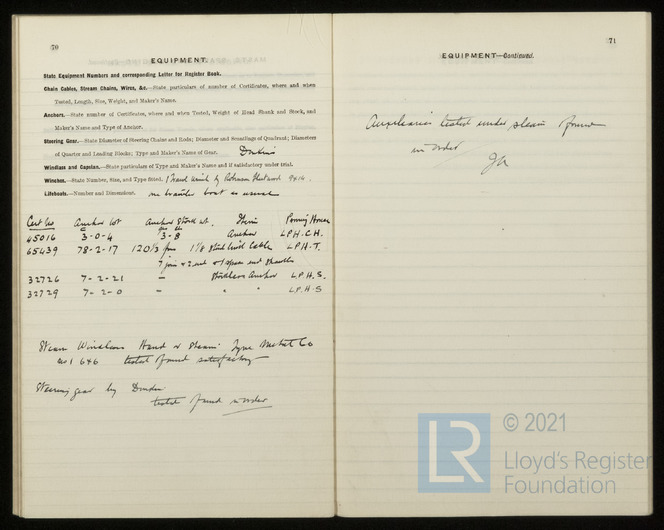 70
EQUIPMENT.
State Equipment Numbers and corresponding Letter for Register Book.
Chain Cables, Stream Chains, Wires, &c.—State particulars of number of Certificates, where and when
Tested, Length, Size, Weight, and Maker's Name.
Anchors.—State number of Certificates, where and when Tested, Weight of Head Shank and Stock, and
Maker's Name and Type of Anchor.
Steering Gear.—State Diameter of Steering Chains and Rods; Diameter and Scantlings of Quadrant; Diameters
of Quarter and Leading Blocks; Type and Maker's Name of Gear.
Windlass and Capstan.—State particulars of Type and Maker's Name and if satisfactory under test.
Winches.—State Number, Size, and Type fitted. 1 Trawl Winch by 9x14.
Lifeboats.—Number and Dimensions. one boat as usual
Cert No Anchor wt Anchor Stock wt. Item Proving House
45016 3-0-4 3-8 Anchor LPH.C.H.
65439 78-2-17 120/3 fms 1 7/8 Stud link Cable LPH.T.
32726 7-2-21 — Stockless Anchor L.P.H.S.
32729 7-2-0 — " " L.P.H.S
Steam Windlass Hand & Steam Tyne Metal Co
no 1646 tested & found satisfactory
Steering gear by Donkin
tested & found in order
71
EQUIPMENT—Continued.
Auxiliaries tested under steam & found
in order
© 2021
LR
Lloyd's Register
Foundation